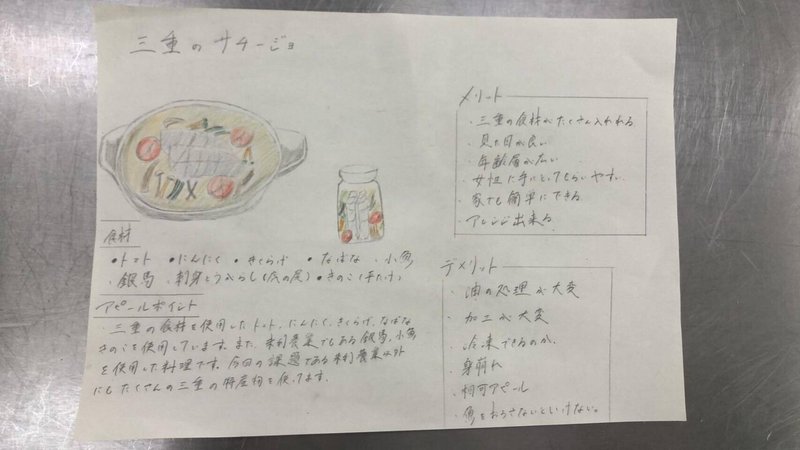 三重のサチージョ
食材
・トマト ・にんにく ・きくらげ ・なばな ・小魚
・銀馬 ・刺身とうがらし(虎の尾) ・きのこ(茸だけ)
アピールポイント
・三重の食材を使用したトマト、にんにく、きくらげ、なばな
きのこを使用しています。また、未利養業でもある銀馬、小魚
を使用した料理です。今回の課題である未利養業以外
にもたくさんの三重の特産物を使ってます。
メリット
・三重の食材がたくさん入れれる
・見た目が良い
・年齢層が広い
・女性に手にとってもらいやすい
・家でも簡単にできる
・アレンジ出来る
デメリット
・油の処理が大変
・加工が大変
・冷凍できるのか、
・身崩れ
・何アピール
・魚をおろさないといけない。